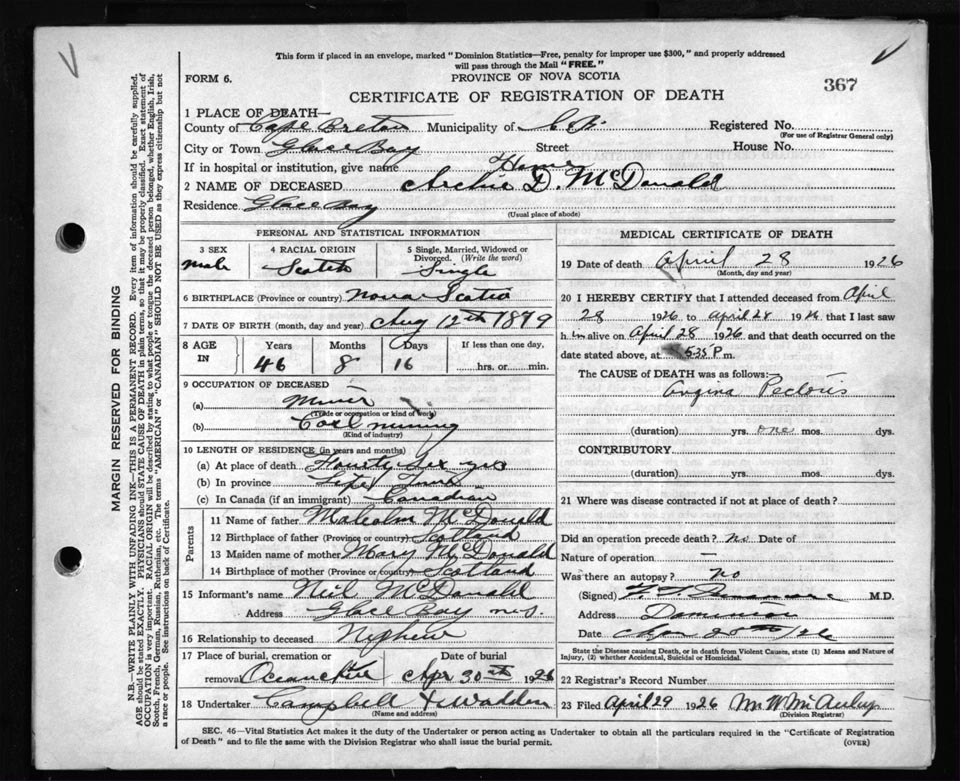 This form if placed in an envelope, marked "Dominion Statistics—Free, penalty for improper use $300," and properly addressed
will pass through the Mail "FREE."
FORM 6.
PROVINCE OF NOVA SCOTIA
367
CERTIFICATE OF REGISTRATION OF DEATH
1 PLACE OF DEATH—
County of Cape Breton Municipality of C B. Registered No.
(For use of Registrar General only)
City or Town Glace Bay Street House No.
If in hospital or institution, give name Home
2 NAME OF DECEASED Archie D. McDonald
Residence Glace Bay
(Usual place of abode)
PERSONAL AND STATISTICAL INFORMATION
3 SEX
male
4 RACIAL ORIGIN
Scotch
5 Single, Married, Widowed or Divorced. (Write the word)
Single
6 BIRTHPLACE (Province or country) Nova Scotia
7 DATE OF BIRTH (month, day and year) Aug 12th 1879
8 AGE IN
Years Months Days If less than one day,
46 8 16 hrs. or min.
9 OCCUPATION OF DECEASED
(a) Miner
(Trade or occupation or kind of work)
(b) Coal mining
(Kind of industry)
10 LENGTH OF RESIDENCE (in years and months)
(a) At place of death Fourty six yrs
(b) In province Life Time
(c) In Canada (if an immigrant) Canadian
Parents
11 Name of father Malcolm McDonald
12 Birthplace of father (Province or country) Scotland
13 Maiden name of mother Mary McDonald
14 Birthplace of mother (Province or country) Scotland
15 Informant's name Neil McDonald
Address Glace Bay N.S.
16 Relationship to deceased Nephew
17 Place of burial, cremation or removal
Date of burial
Apr 30th 1926
18 Undertaker Campbell & Wadden
(Name and address)
MEDICAL CERTIFICATE OF DEATH
19 Date of death April 28 1926
(Month, day and year)
20 I HEREBY CERTIFY that I attended deceased from April
28 1926 to April 28 1926 that I last saw
him alive on April 28 1926 and that death occurred on the
date stated above, at 5:35 P m.
The CAUSE OF DEATH was as follows:
Angina Pectoris
(duration) yrs. one mos. dys.
CONTRIBUTORY.
(duration) yrs. mos. dys.
21 Where was disease contracted if not at place of death?
Did an operation precede death? No Date of
Nature of operation —
Was there an autopsy? no
(Signed) M.D.
Address Dominion
Date
State the Disease causing Death, or in death from Violent Causes, state (1) Means and Nature of
Injury, (2) whether Accidental, Suicidal or Homicidal.
22 Registrar's Record Number
23 Filed April 29 1926 M. W. McAulay
(Division Registrar)
SEC. 46—Vital Statistics Act makes it the duty of the Undertaker or person acting as Undertaker to obtain all the particulars required in the "Certificate of Registration
of Death" and to file the same with the Division Registrar who shall issue the burial permit.
(OVER)
MARGIN RESERVED FOR BINDING
N.B.—WRITE PLAINLY WITH UNFADING INK—THIS IS A PERMANENT RECORD. Every item of information should be carefully supplied.
AGE should be stated EXACTLY. PHYSICIANS should STATE CAUSE OF DEATH in plain terms, so that it may be properly classified. Exact statement of
OCCUPATION is very important. RACIAL ORIGIN will be described by stating to what people or tongue the deceased person belonged, whether English, Irish,
Scotch, French, German, Russian, Ruthenian, etc. The terms "AMERICAN" or "CANADIAN" SHOULD NOT BE USED as they express citizenship but not
a race or people. See instructions on back of Certificate.